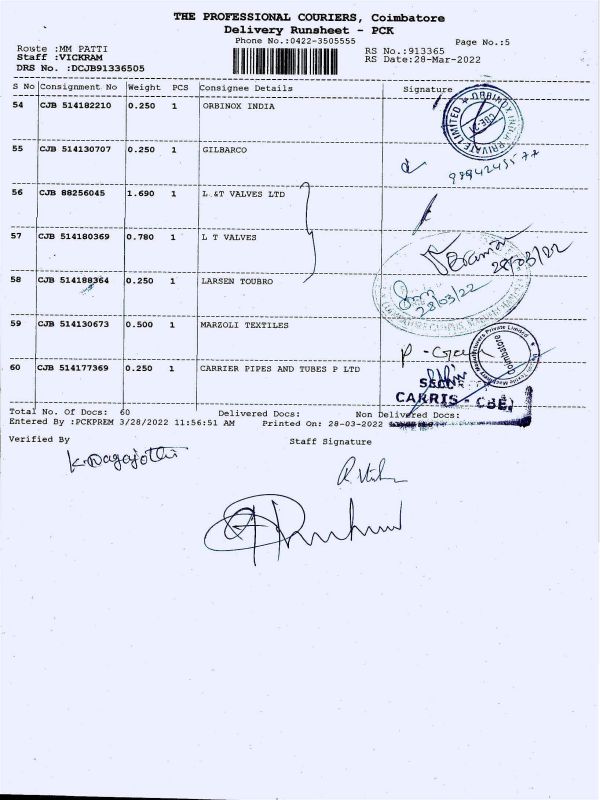 THE PROFESSIONAL COURIERS, Coimbatore
Delivery Runsheet - PCK
Phone No.:0422-3505555
Page No.:5
Route :MM PATTI
RS No.:913365
Staff :VICKRAM
RS Date:28-Mar-2022
DRS No. :DCJB91336505
S No Consignment No Weight PCS Consignee Details Signature
54 CJB 514182210 0.250 1 ORBINOX INDIA
ORBINOX INDIA PRIVATE LIMITED
CBE-21
55 CJB 514130707 0.250 1 GILBARCO
9894243577
56 CJB 88256045 1.690 1 L &T VALVES LTD
57 CJB 514180369 0.780 1 L T VALVES
28/03/22
58 CJB 514188364 0.250 1 LARSEN TOUBRO
28/03/22
59 CJB 514130673 0.500 1 MARZOLI TEXTILES
Coimbatore
60 CJB 514177369 0.250 1 CARRIER PIPES AND TUBES P LTD
CARRIS - CBE.
Total No. Of Docs: 60 Delivered Docs: Non Delivered Docs:
Entered By :PCKPREM 3/28/2022 11:56:51 AM Printed On: 28-03-2022
Verified By
Staff Signature
K. Nagajothi